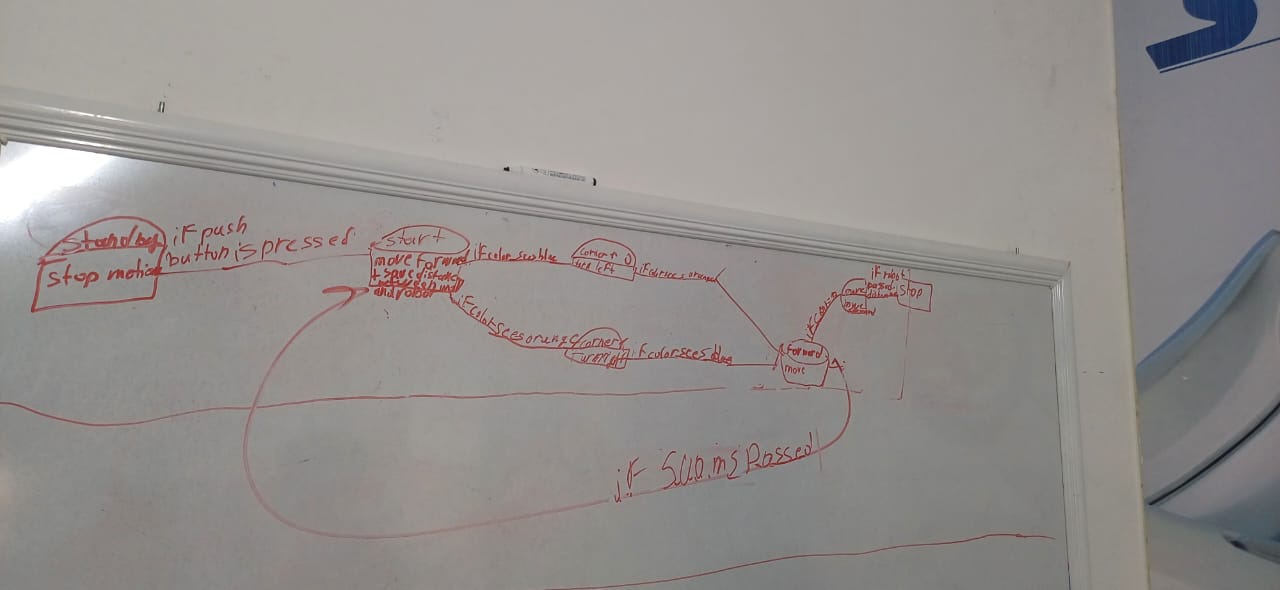 Standby
Stop motion
iF push
button is pressed
start
move forward
+ save distance
between
and robot
iF color sees blue
corner
turn left
iF color sees orange
iF color sees orange
corner
turn right
iF color sees blue
forward
move
iF robot
passed
move
Stop
iF 500 ms Passed